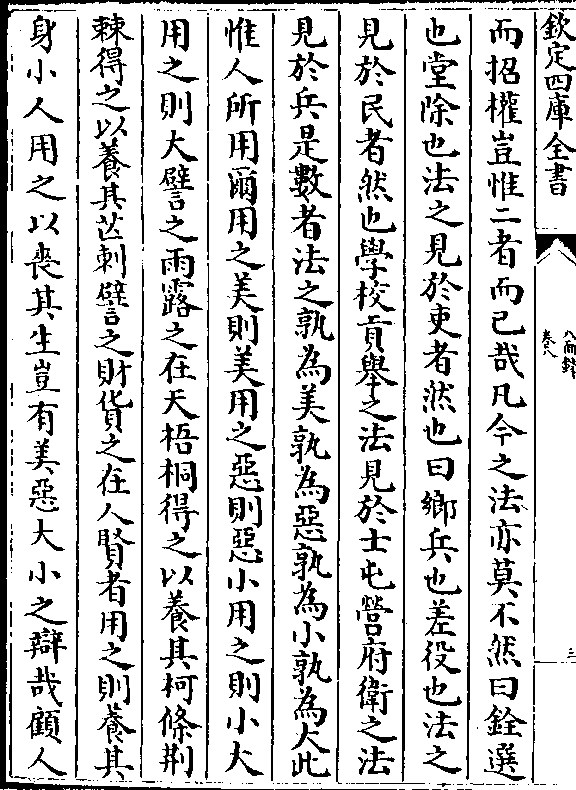 欽定四庫全書
八面鋒
卷八
三
而招權豈惟二者而已哉凡今之法亦莫不然曰銓選
也堂除也法之見於吏者然也曰鄉兵也差役也法之
見於民者然也學校貢舉之法見於士屯營府衛之法
見於兵是數者法之孰為美孰為惡孰為小孰為大此
惟人所用爾用之美則美用之惡則惡小用之則小大
用之則大譬之雨露之在天梧桐得之以養其柯條荆
棘得之以養其芒刺譬之財貨之在人賢者用之則養其
身小人用之以喪其生豈有美惡大小之辯哉顧人